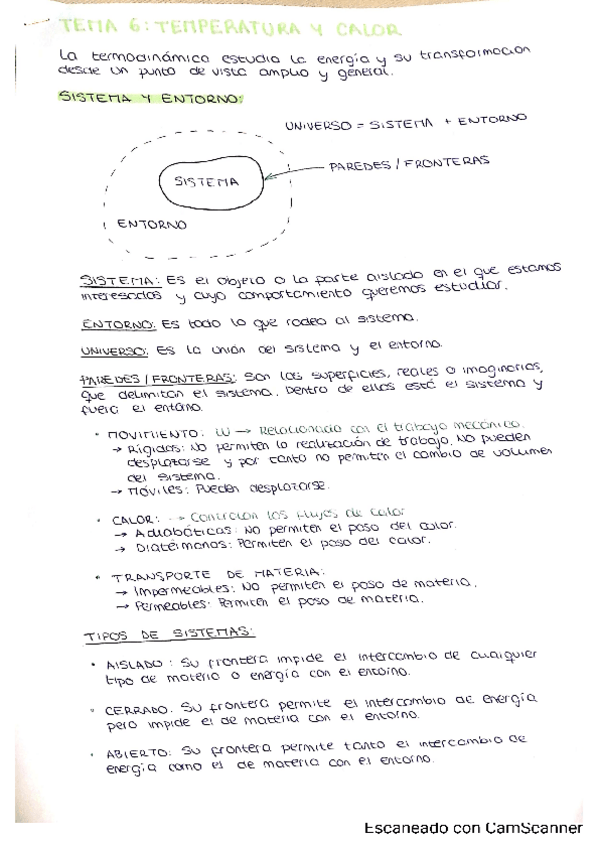 TEMA 6: TEMPERATURA Y CALOR
La termodinámica estudia la energía y su transformación
desde un punto de vista amplio y general.
SISTEMA Y ENTORNO:
UNIVERSO = SISTEMA + ENTORNO
PAREDES / FRONTERAS
SISTEMA
ENTORNO
SISTEMA: Es el objeto o la parte aislada en el que estamos
interesados y cuyo comportamiento queremos estudiar.
ENTORNO: Es todo lo que rodea al sistema.
UNIVERSO: Es la unión del sistema y el entorno.
PAREDES / FRONTERAS: Son las superficies, reales o imaginarias,
que delimitan el sistema. Dentro de ellas está el sistema y
fuera el entorno.
• MOVIMIENTO: W → Relacionado con el trabajo mecánico.
→ Rígidas: No permiten la realización de trabajo. No pueden
desplazarse y por tanto no permiten el cambio de volumen
del sistema.
→ Móviles: Pueden desplazarse.
• CALOR: → Controlan los flujos de calor
→ Adiabáticas: No permiten el paso del calor.
→ Diatérmanas: Permiten el paso del calor.
• TRANSPORTE DE MATERIA:
→ Impermeables: No permiten el paso de materia.
→ Permeables: Permiten el paso de materia.
TIPOS DE SISTEMAS:
• AISLADO: Su frontera impide el intercambio de cualquier
tipo de materia o energía con el entorno.
• CERRADO. Su frontera permite el intercambio de energía
pero impide el de materia con el entorno.
• ABIERTO: Su frontera permite tanto el intercambio de
energía como el de materia con el entorno.
Escaneado con CamScanner